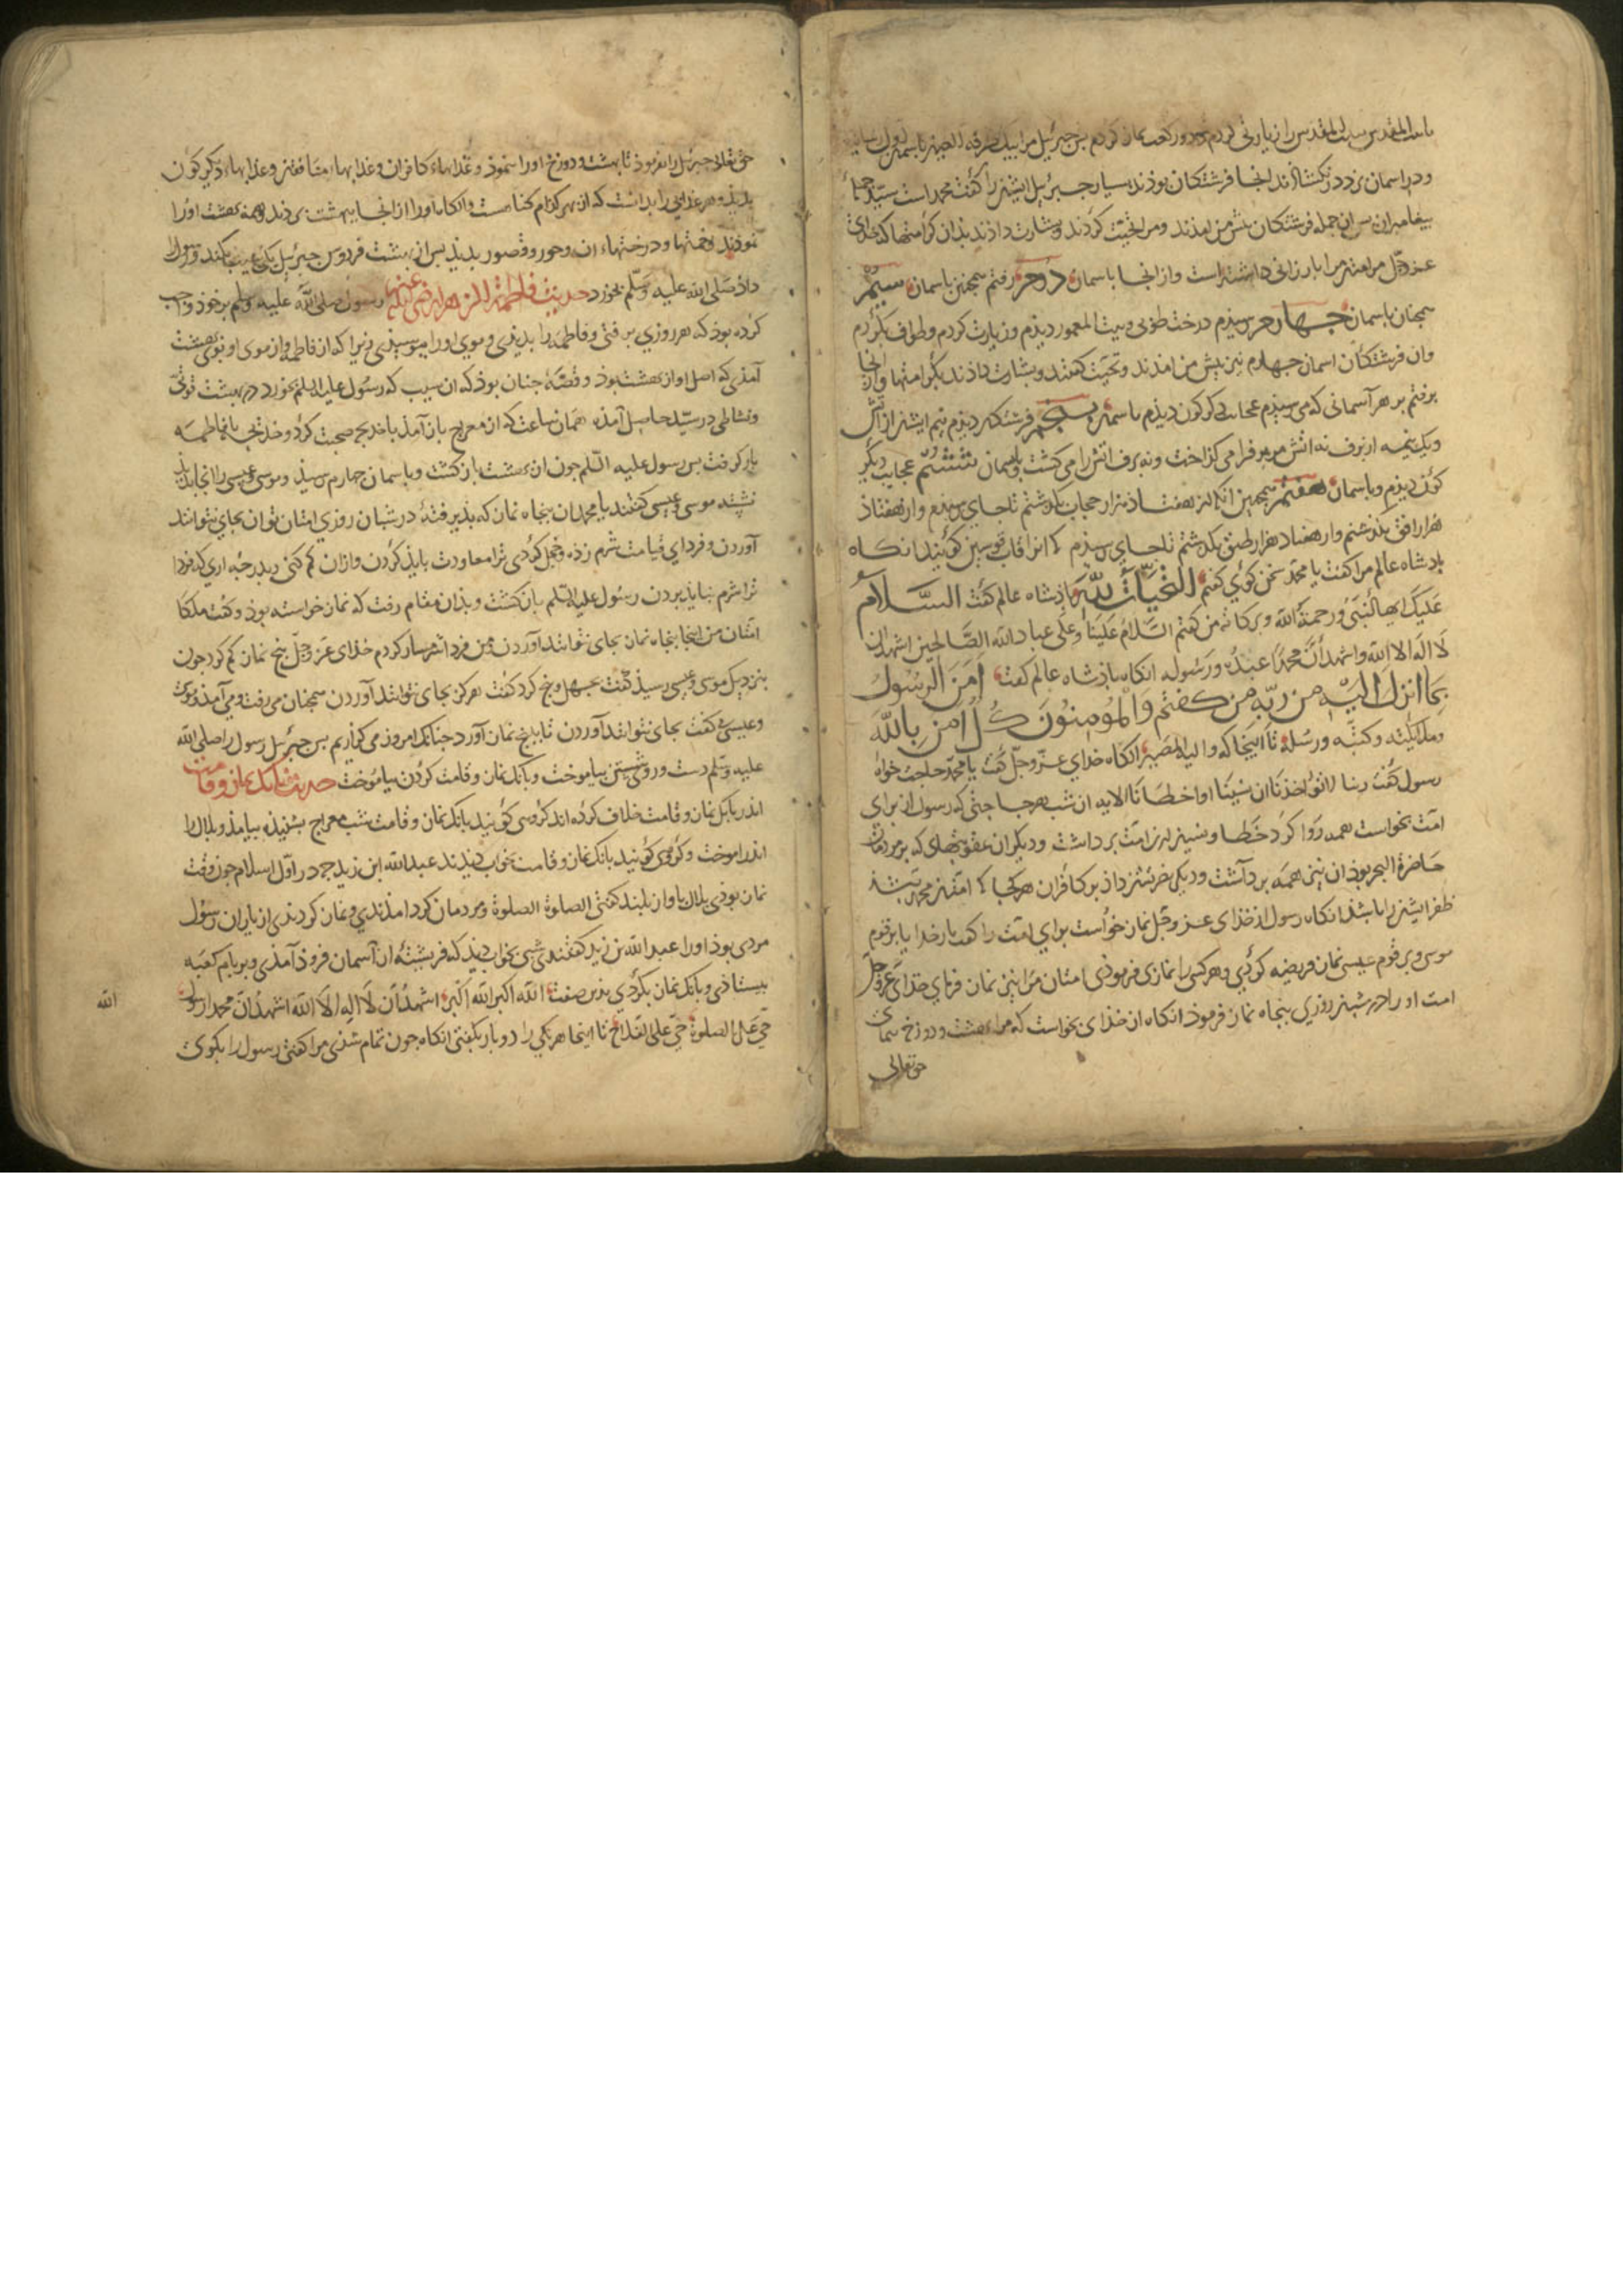 بیت المقدس را زیارتی کردم و دو رکعت نماز کردم پس جبرئیل مرا بیک طرفة العین باسمان اول رسانید
و در اسمان بزد در بکشادند انجا فرشتکان بودند بسیار جبرئیل ایشنرا کفت محمد است سید جملهٔ
بیغامبران بس ان جمله فرشتکان بیش من امدند و مرا تحیت کردند و بشارت دادند بدان کرامتها که خدای
عز و جل مرا بارزانی داشته است و از انجا باسمان دوم رفتم همچنین باسمان سیم
همچنان باسمان جهارم رسیذم درخت طوبی و بیت المعمور دیدم و زیارت کردم و طواف بکردم
وان فرشتکان اسمان جهارم نیز بیش من امذند و تحیت کفتند و بشارت داذند بکرامتها و از انجا
برفتم بر هر آسمانی که می رسیذم عجایب دکر کون دیذم باسمان بنجم فرشتکان دیذم نیم ایشنر از آتش
و یک نیمه از برف نه اتش مر برف را می کداخت و نه برف اتش را می کشت و باسمان ششم عجایب دیکر
کون دیذم و باسمان هفتم همچنین انکه از هفتاد هزار حجاب بکذشتم تا بجای رسیدم و از هفتاد
هزار افق بکذشتم و از هفتاد هزار طبق بکذشتم تا بجای رسیذم که انرا قاب قوسین کویند انکاه
بادشاه عالم مرا کفت یا محمد سخن کوی کفتم التحیّات للّه باذشاه عالم کفت السّلام
علیک ایها النبی و رحمة الله و برکاته من کفتم السلام علینا و علی عباد الله الصالحین اشهد ان
لا اله الا الله واشهد ان محمدا عبده ورسوله انکاه باذشاه عالم کفت امن الرسول
بما انزل الیه من ربّه من کفتم والمؤمنون کل امن بالله
وملایکته وکتبه ورسله تا اینجا که والیک المصیر انکاه خدای عز و جل کفت یا محمد حاجت خواه
رسول کفت ربنا لا تؤاخذنا ان نسینا او اخطانا الایه ان شب هر حاجتی که رسول از برای
امت بخواست همه روا کرد خطا و نسیان از امت برداشت و دیکر ان عقوبتهای که بر مردمان
حاضرة البحر بوذ ان نیز همه برداشت و دیکر داذ بر کافران هر کجا که امت محمد
ظفر ایشنرا باشد انکاه رسول از خدای عز و جل نماز خواست برای امت را کفت بار خدایا بر قوم
موسی و بر قوم عیسی نماز فریضه کردی و هر کسی را نمازی فرمودی امتان مرا نیز نماز فرمای خدای عز و جل
امت او را در شبانروزی بنجاه نماز فرموذ انکاه از خدای بخواست که مرا بهشت و دوزخ بنمای
حق تعالی
حق تعالی جبرئیل را بفرموذ تا بهشت و دوزخ او را بنموذ و عذابهاء کافران و عذابهاء منافقنر و عذابهاء دیکر کون
بدید و هر عذابی را بدانست که از بهر کدام کناهست و انکاه او را از انجا ببهشت بردند و همه بهشت او را
نموذند نعمتها و درختهاء ان و حور و قصور بدید بس از بهشت فردوس جبرئیل یکی سیب بکند و رسول را
داذ صلی الله علیه و سلم بخورد حدیث فاطمة الزهرا رضی الله عنها رسول صلی الله علیه و سلم بر خوذ واجب
کرده بوذ که هر روزی برفتی و فاطمه را بدیدی و موی او را ببوسیدی زیرا که از فاطمه و از موی او بوی بهشت
آمدی که اصل او از بهشت بوذ و قصّه جنان بوذ که ان سیب که رسول علیه السلم بخورد در بهشت قوتی
و نشاطی در سید حاصل آمده همان ساعت که از معراج باز آمذ با خدیجه صحبت کرد و خدیجه بفاطمه
بار کرفت بس رسول علیه السلم جون از بهشت باز کشت و باسمان جهارم رسیذ و موسی و عیسی را انجا بدید
نشسته موسی و عیسی کفتند یا محمد ان بنجاه نماز که بذیرفتهٔ در شبان روزی امتان توان بجای نتوانند
آوردن و فردای قیامت شرم زده و خجل کردی ترا معاودت باید کردن و ازان کم کنی
ترا شرم نباید بردن رسول علیه السلم باز کشت و بذان مقام رفت که نماز خواسته بوذ و کفت ملکا
امتان من اینجا بنجاه نماز بجای نتوانند آوردن من فردا شرمسار کردم خدای عز و جل بنج نماز کم کرد جون
بنزدیک موسی و عیسی رسیذ کفت جهل و بنج کرد کفت هرکز بجای نتوانند آوردن همچنان می رفت و می آمذ و موسی
و عیسی کفت بجای نتوانند آوردن تا بابنج نماز آورد جنانک امروز می کذاریم بس جبرئیل رسول را صلی الله
علیه و سلم دست و روی شستن بیاموخت و بانک نماز و قامت کردن بیاموخت حدیث بانک نماز و قامت
اندر بانک نماز و قامت خلاف کرده اند کروهی کویند بانک نماز و قامت شب معراج بشنیذ بیامذ و بلال را
اندر اموخت و کروهی کویند بانک نماز و قامت بخواب دیدند عبد الله ابن زید جه در اول اسلام جون وقت
نماز بوذی بلال باواز بلند کفتی الصلوة الصلوة و مردمان کرد امذندی و نماز کردندی از یاران رسول
مردی بوذ او را عبد الله بن زید کفتندی شبی بخواب دیذ که فریشتهٔ از آسمان فروذ آمذی و بر بام کعبه
بیستاذی و بانک نماز بکردی بدین صفت الله اکبر الله اکبر اشهد ان لا اله الا الله اشهد ان محمدا رسول الله
حی علی الصلوة حی علی الفلاح تا اینجا هر یکی را دو بار بکفتی انکاه جون تمام شدی مرا کفتی رسول را بکوی